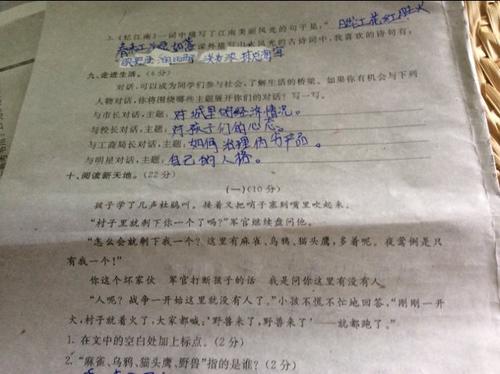 3.《忆江南》一词中描写了江南美丽风光的句子是:“日出江花红胜火
春来江水
”课外描写山水风光的古诗词中,我喜欢的诗句有:
九、走进生活。(4分)
对话,可以成为同学们参与社会,了解生活的桥梁。如果你有机会与下列
人物对话,你将围绕哪些主题展开你们的对话?写一写。
与市长对话,主题:对城里的经济情况。
与校长对话,主题:对孩子们的心态。
与工商局长对话,主题:如何治理伪劣产品。
与明星对话,主题:自己的人格。
十、阅读新天地。(22分)
(一)(10分)
孩子学了几声杜鹃叫。接着又把哨子塞到嘴里吹起来。
“村子里就剩下你一个了吗?”军官继续盘问他。
“怎么会就剩下我一个?这里有麻雀、乌鸦、猫头鹰,多着呢。夜莺倒是只
有我一个!”
你这个坏家伙 军官打断孩子的话 我是问你这里有没有人
“人呢?战争一开始这里就没有人了。”小孩不慌不忙地回答,“刚刚一开
火,村子就着火了,大家都喊:‘野兽来了,野兽来了’——就都跑了。”
1. 在文中的空白处加上标点。(2分)
2. “麻雀、乌鸦、猫头鹰、野兽”指的是谁?(2分)